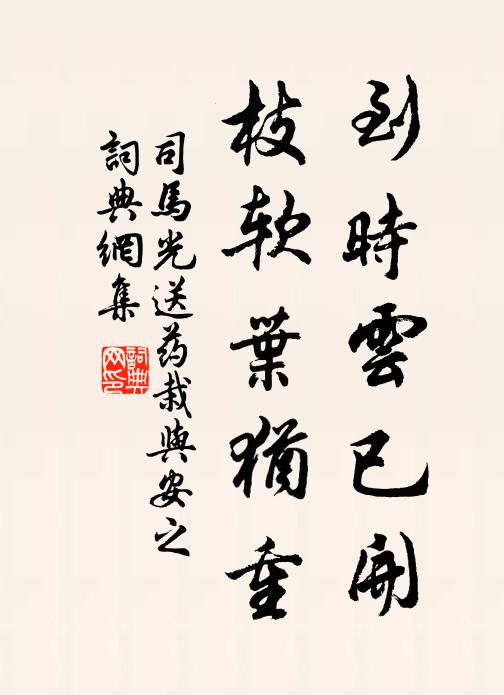 到時雲已開
枝軟葉猶重
司馬光送药栽與安之
詞典網集
詞典
网印